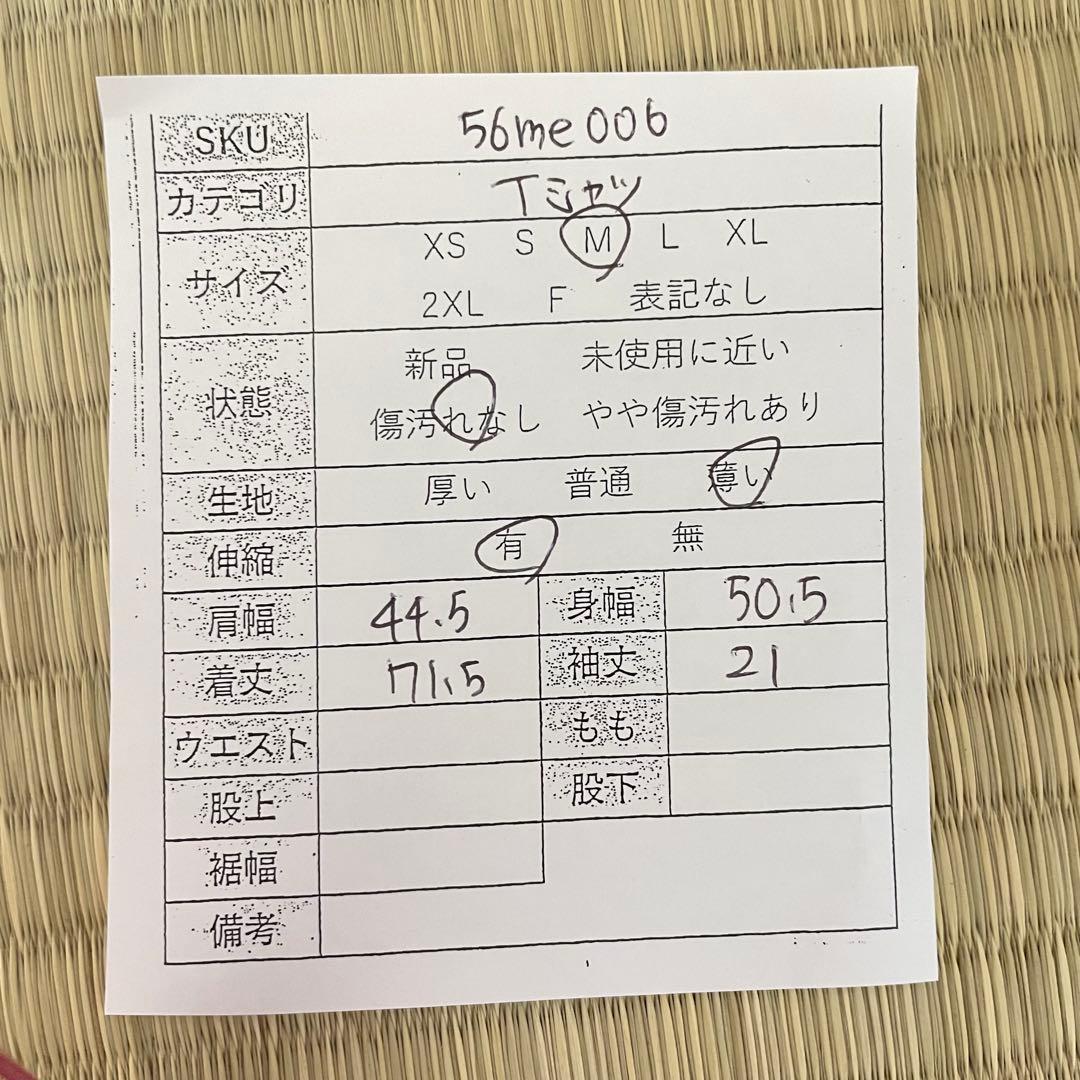 SKU 56me006
カテゴリ Tシャツ
サイズ XS S M L XL
2XL F 表記なし
状態 新品 未使用に近い
傷汚れなし やや傷汚れあり
生地 厚い 普通 薄い
伸縮 有 無
肩幅 44.5 身幅 50.5
着丈 71.5 袖丈 21
ウエスト もも
股上 股下
裾幅
備考